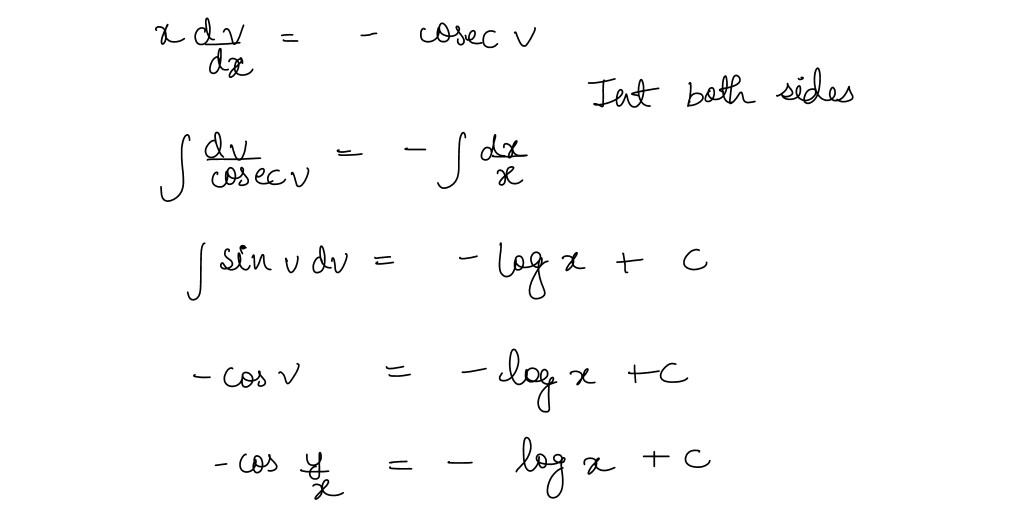 x dv/dx = - cosec v
Int both sides
∫ dv/cosec v = - ∫ dx/x
∫ sin v dv = - log x + c
- cos v = - log x + c
- cos y/x = - log x + c